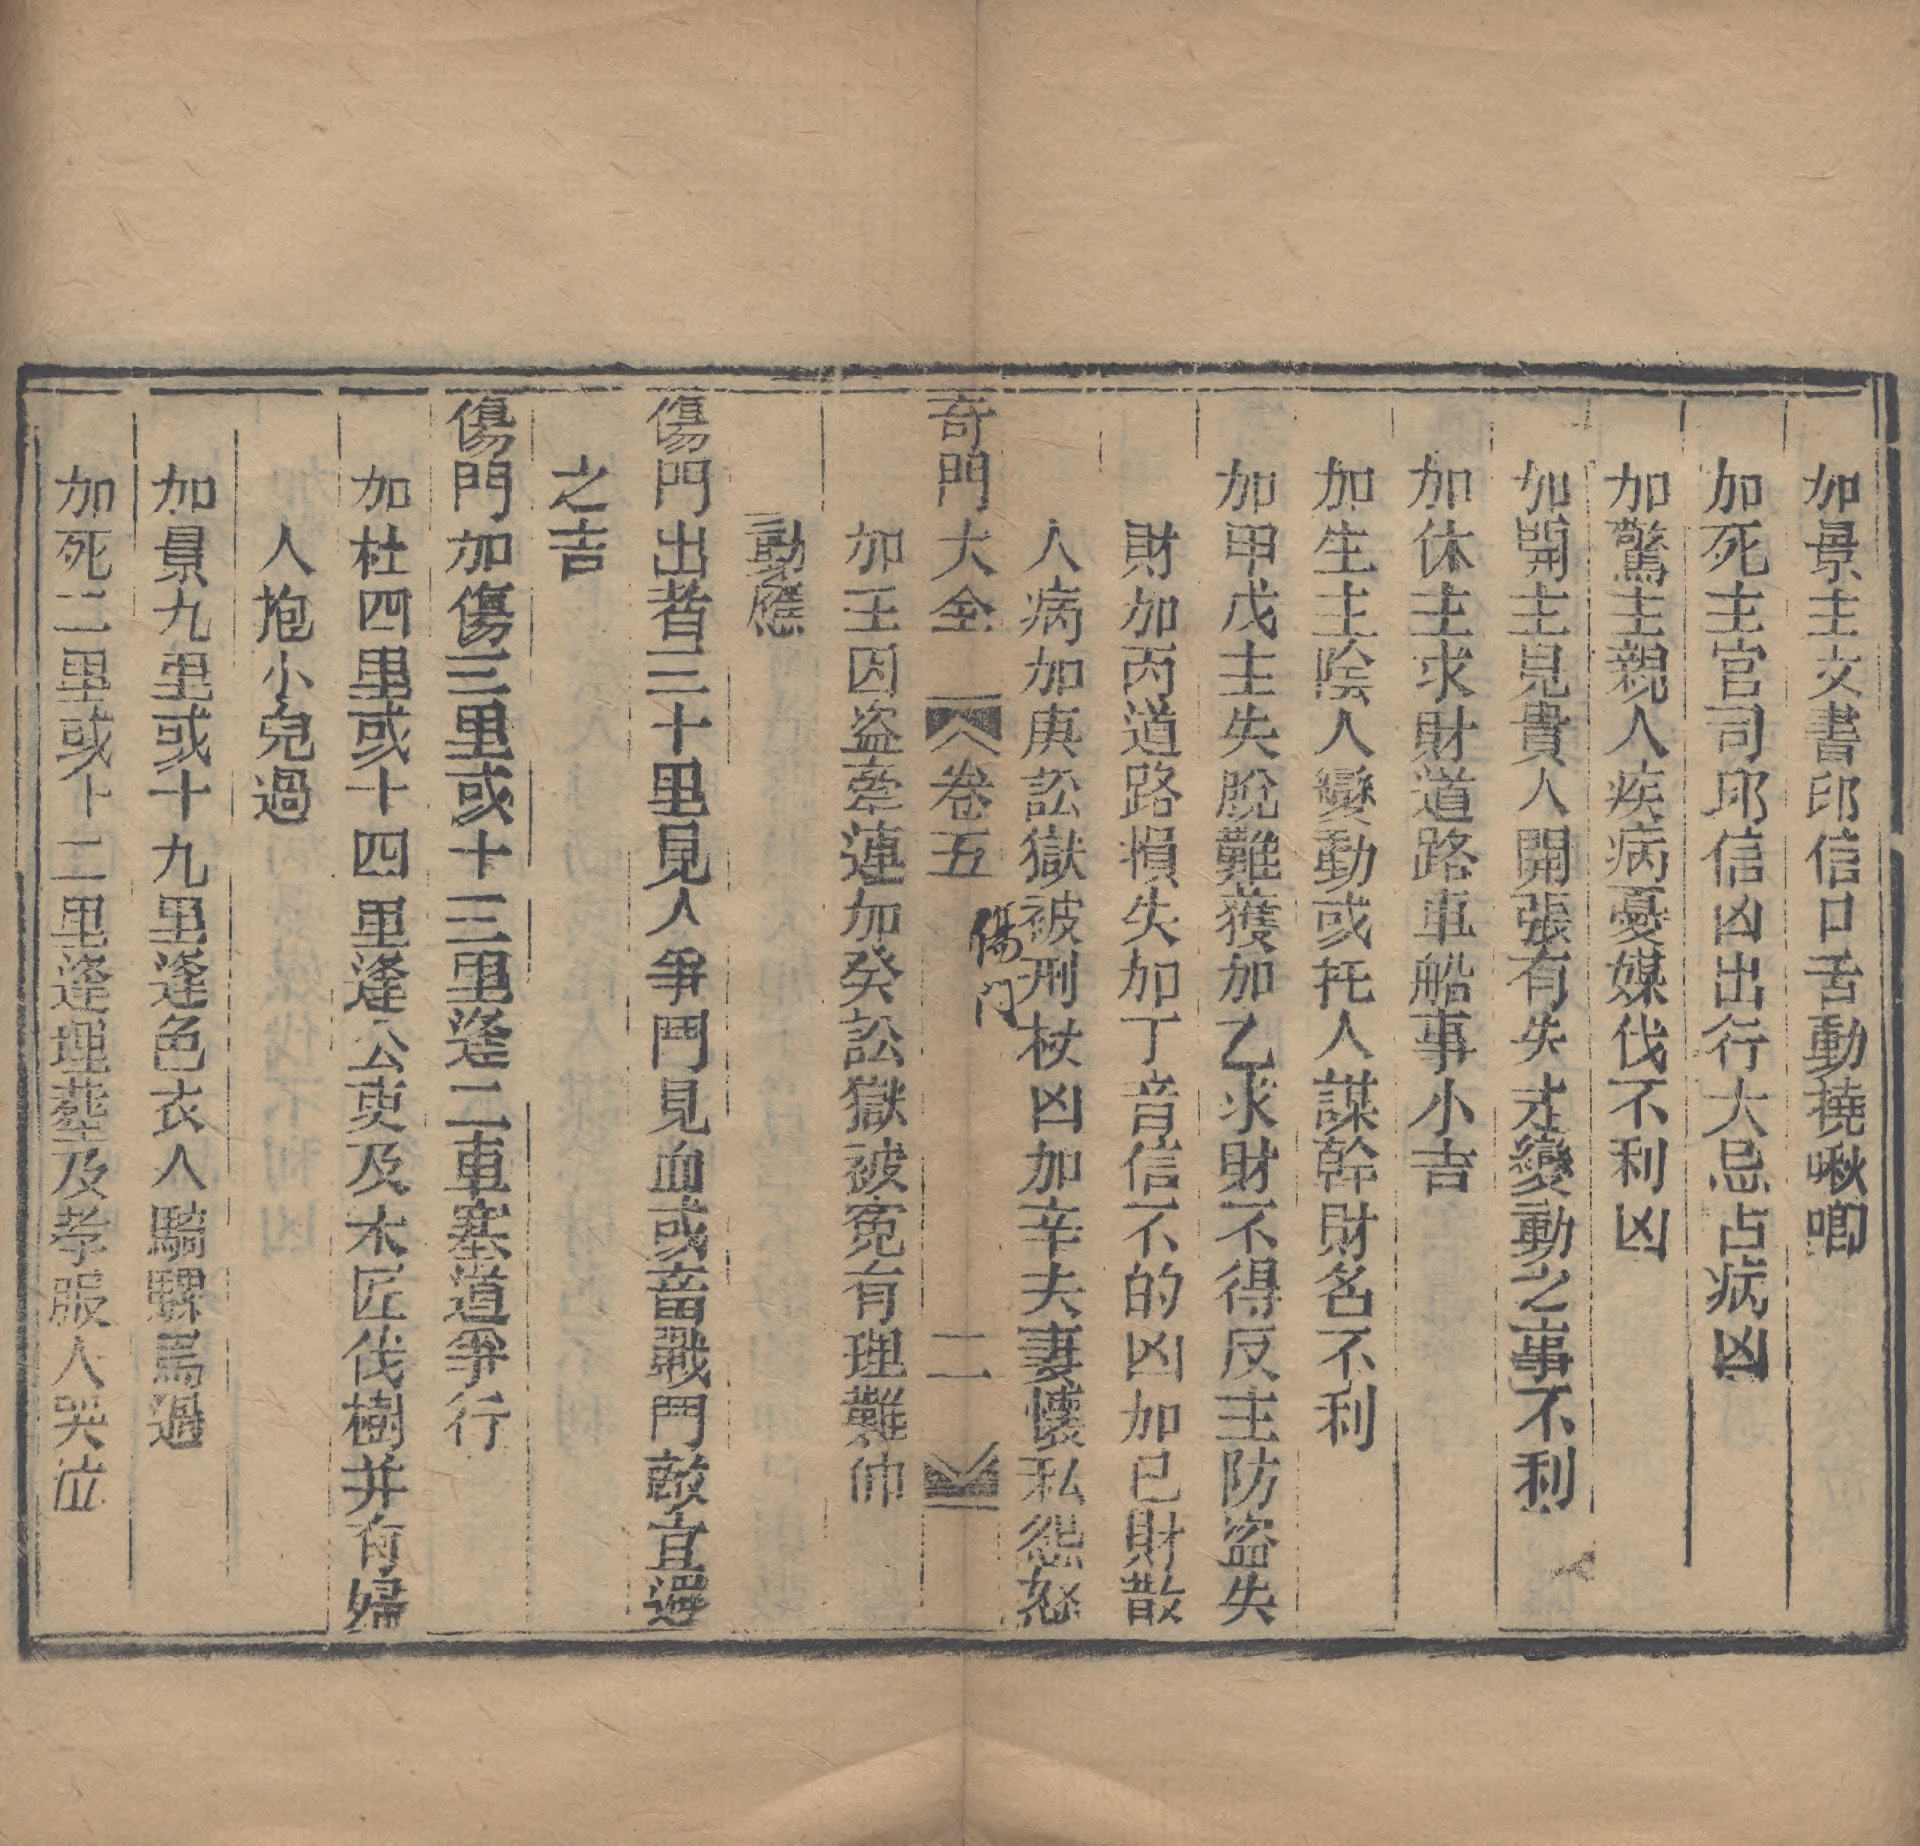 加景主文書印信口舌動撓啾唧
加死主官司印信凶出行大忌占病凶
加驚主親人疾病憂媒伐不利凶
加開主見貴人開張有失才變動之事不利
加休主求財道路車船事小吉
加生主陰人變動或托人謀幹財名不利
加甲戊主失脫難獲加乙求財不得反主防盜失
財加丙道路損失加丁音信不的凶加己財散
人病加庚訟獄被刑杖凶加辛夫妻懷私怨怒
奇門大全 卷五 二
傷门
加壬因盜牽連加癸訟獄被冤有理難伸
動應
傷門出者三十里見人爭鬥見血或畜戰鬥敵宜還
之吉
傷門加傷三里或十三里逢二車塞道爭行
加杜四里或十四里逢公吏及木匠伐樹并有婦
人抱小兒過
加景九里或十九里逢色衣人騎騾馬過
加死二里或十二里逢埋塟及孝服人哭泣